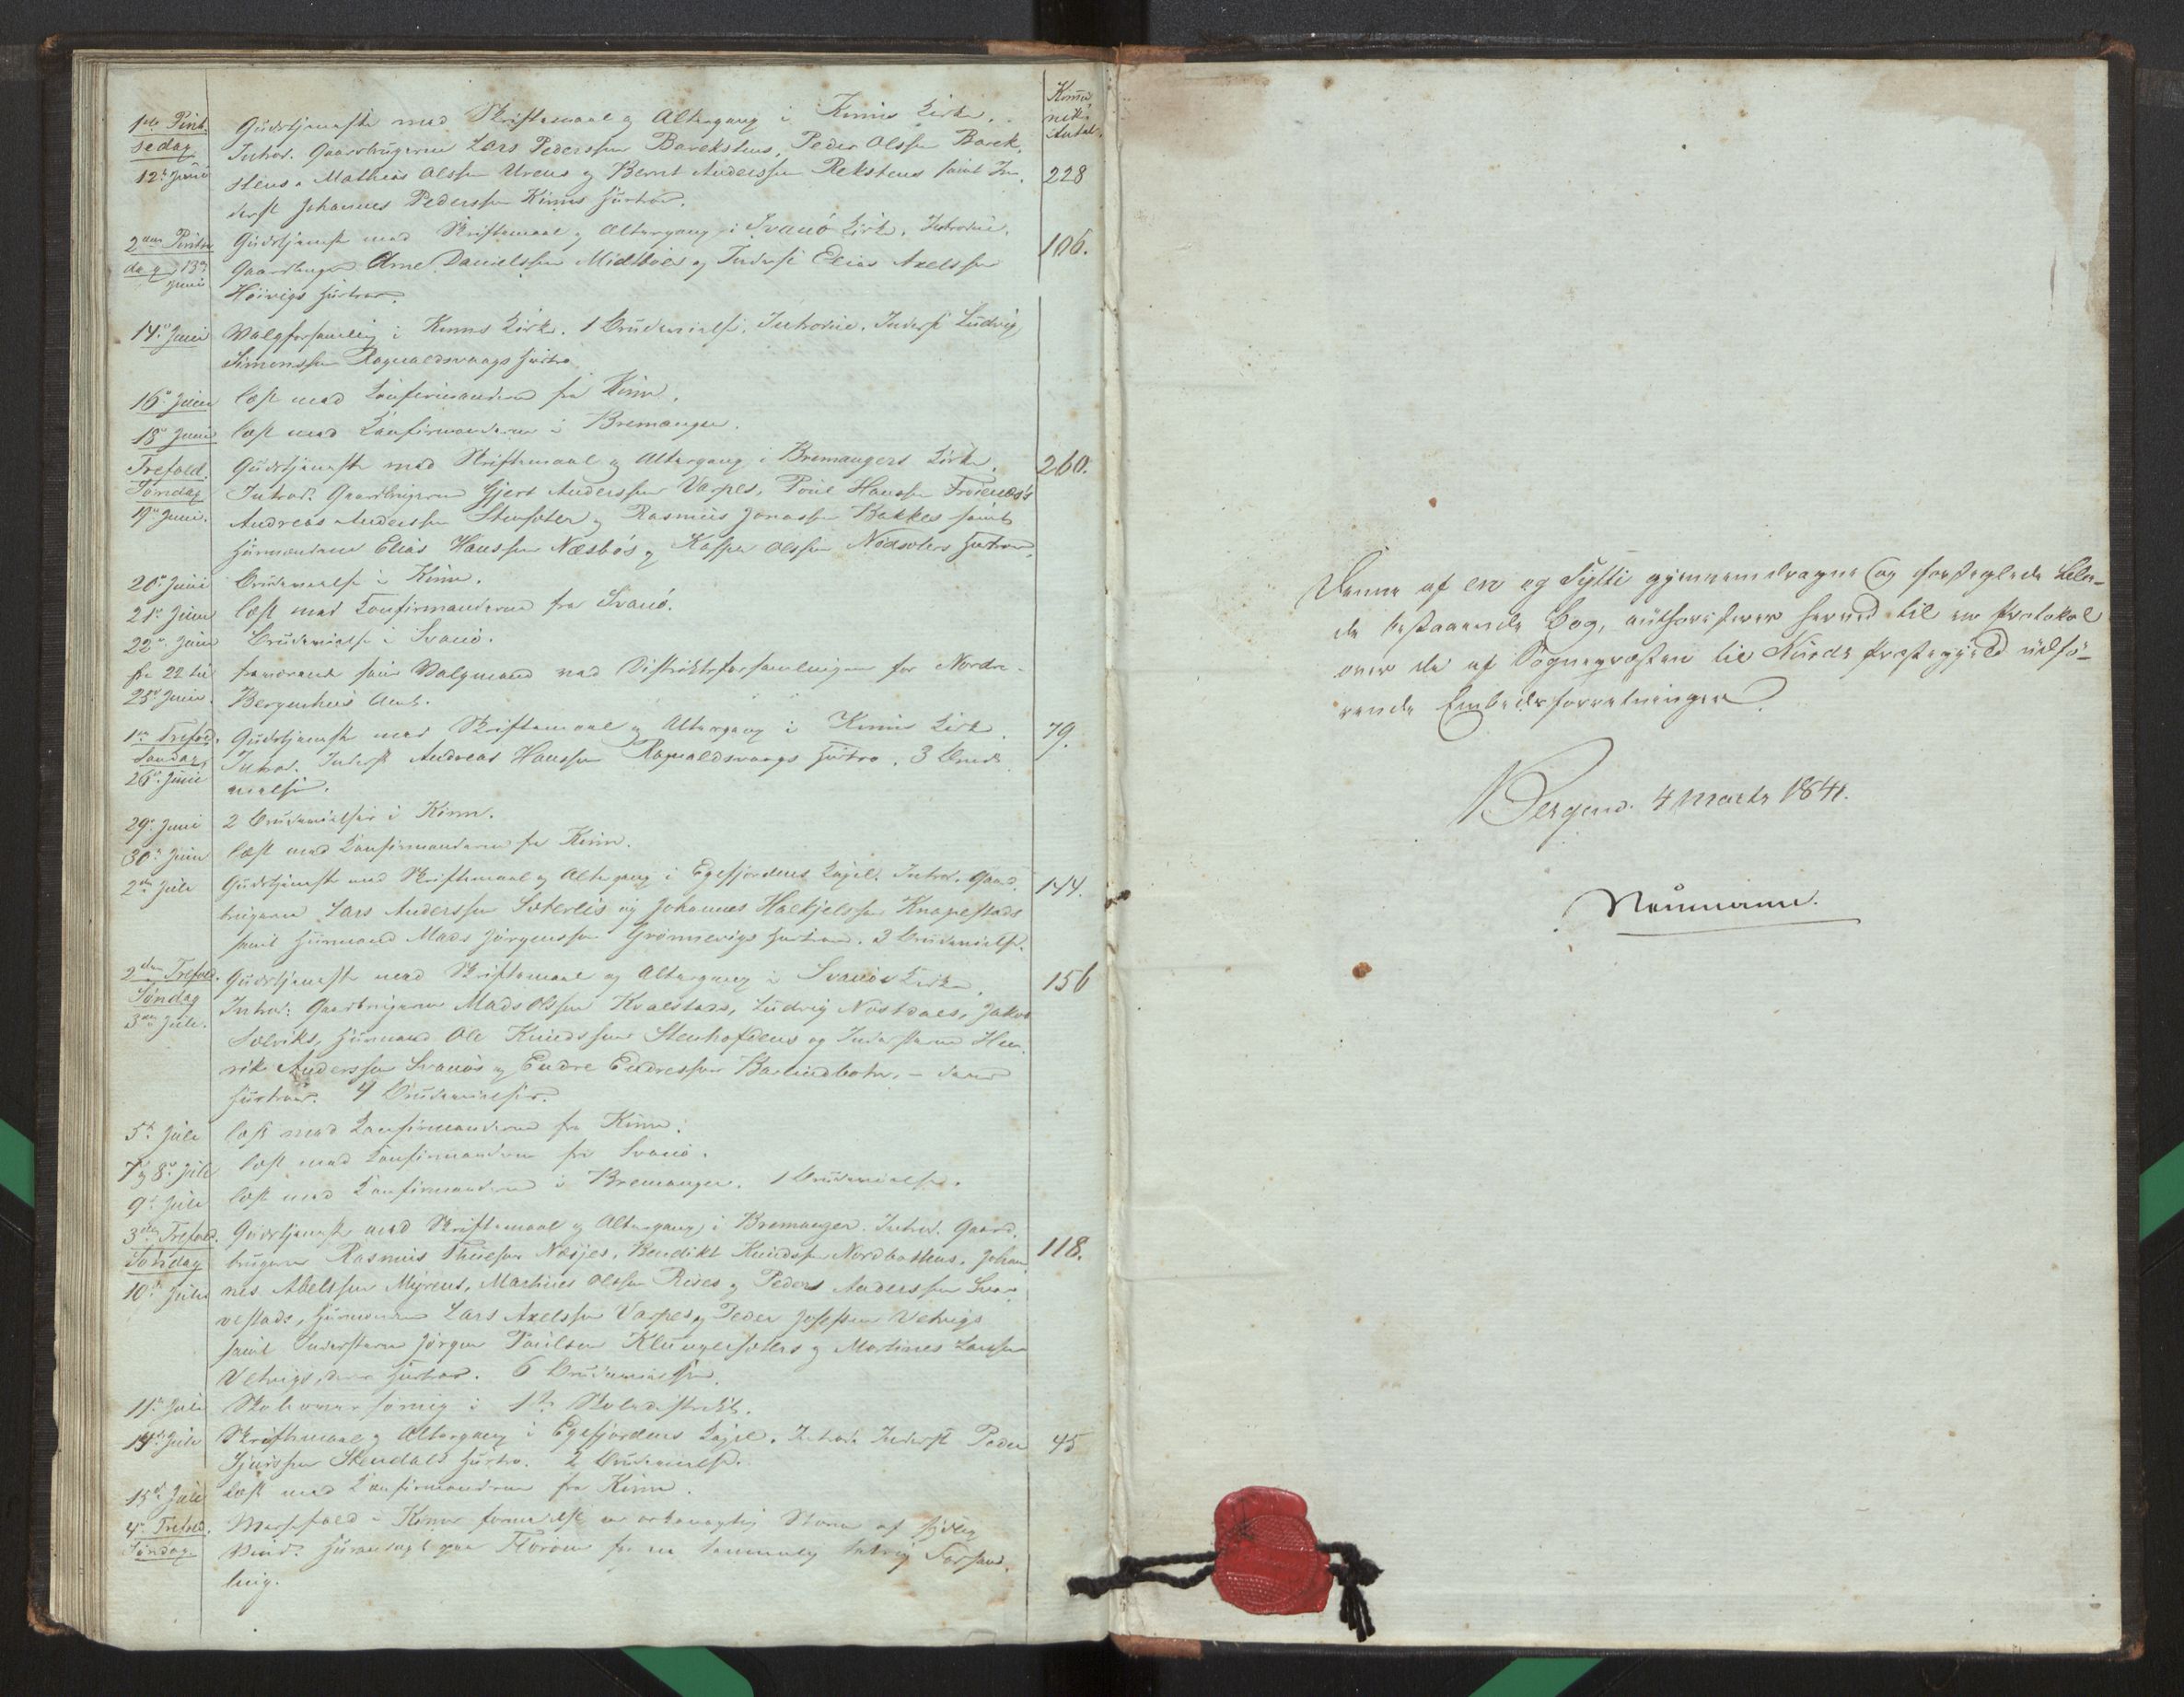 Komū-
nik-
Antal.
1ste Pint-
sedag
12te Juni
Gudstjeneste med Skriftemaal og Altergang i Kinns Kirke.
Introd. Gaardbrugerne Lars Pederssen Barekstens, Peder Olssen Barek-
stens, Mathias Olssen Urens og Bernt Anderssen Rekstens samt In-
derst Johannes Pederssen Kinns Hustroer.
228
2den Pintse
dag 13de
Juni
Gudstjeneste med Skriftemaal og Altergang i Svanö Kirke. Introduc.
Gaardbruger Arne Danielssen Midtböes og Inderst Elias Axelssen
Höivigs Hustroer.
106.
14de Juni
Valgforsamling i Kinns Kirke. 1 Brudevielse. Introduc. Inderst Ludvig
Simonssen Ragnaldsvaags Hustro.
16de Juni
læst med Konfirmanderne fra Kinn.
18de Juni
læst med Konfirmanderne i Bremanger.
Trefold.
Söndag
19de Juni.
Gudstjeneste med Skriftemaal og Altergang i Bremangers Kirke.
Introd. Gaardbrugerne Gjert Anderssen Varpes, Poul Hanssen Fröienæs's
Andreas Anderssen Stensæter og Rasmus Jonassen Bakkes samt
Huusmændene Elias Hanssen Næsbö's og Kasper Olssen Nödsæters Hustroer.
260.
20de Juni
Brudevielse i Kinn.
21de Juni
læst med Konfirmanderne fra Svanö.
22de Juni
Brudevielse i Svanö.
fra 22 til
25de Juni.
fraværende som Valgmand ved Distriktsforsamlingen for Nordre-
Bergenhuus Amt.
1ste Trefold.
Söndag
26de Juni
Gudstjeneste med Skriftemaal og Altergang i Kinns Kirke.
Introd. Inderst Andreas Hanssen Ragnaldsvaags Hustro. 3 Brude-
vielser.
79.
29de Juni
2 Brudevielser i Kinn.
30te Juni
læst med Konfirmanderne fra Kinn.
2den Juli
Gudstjeneste med Skriftemaal og Altergang i Egefjordens Kapel. Introd. Gaard-
brugerne Lars Anderssen Sæterlis og Johannes Helkjelssen Knapestads
samt Huusmand Mads Jörgenssen Grönnevigs Hustroer. 3 Brudevielser.
144.
2den Trefold.
Söndag
3die Juli.
Gudstjeneste med Skriftemaal og Altergang i Svanö Kirke.
Introd: Gaardbrugerne Mads Olssen Kvalstads, Ludvig Nostdals, Jakob
Solviks, Huusmand Ole Knudssen Stenhofdens og Inderstene Hen-
rik Anderssen Svanös og Endre Endressen Barlindbotn, – deres
Hustroer. 4 Brudevielser.
156
5te Juli
læst med Konfirmanderne fra Kinn.
7de og 8de Juli
læst med Konfirmanderne fra Svanö.
9de Juli
læst med Konfirmanderne i Bremanger. 1 Brudevielse.
3die Trefold.
Söndag
10de Juli
Gudstjeneste med Skriftemaal og Altergang i Bremanger. Introd. Gaard-
brugerne Rasmus Thuessen Nesjes, Bendikt Knudssen Nordbottens, Johan-
nes Abelssen Myrens, Martinus Olssen Rises og Peders Anderssen Svar-
vestads, Huusmændene Lars Axelssen Varpes og Peder Josephssen Vetvigs
samt Inderstene Jörgen Poulsen Klungersæters og Martines Larssen
Vetvigs, deres Hustroer. 6 Brudevielser.
118.
11te Juli
i 1ste Skoledistrikt.
14de Juli
Skriftemaal og Altergang i Egefjordens Kapel. Introd. Inderst Peder
Sjurssen Stendals Hustro. 2 Brudevielser.
45
15de Juli
læst med Konfirmanderne fra Kinn.
4de Trefold.
Söndag.
Messefald i Kinn formedelst en Storm af sydlig
Vind. paa Floröen for en Forsam-
ling.
Denne af en og Sytti gjennemdragne og forseglede Bla-
de bestaaende Bog, authoriseres herved til en Protokol
over de af Sognepræsten til Kinds Præstegjeld udfö-
rende Embedsforretninger.
Bergen d. 4 Marts 1841.
Neumann.